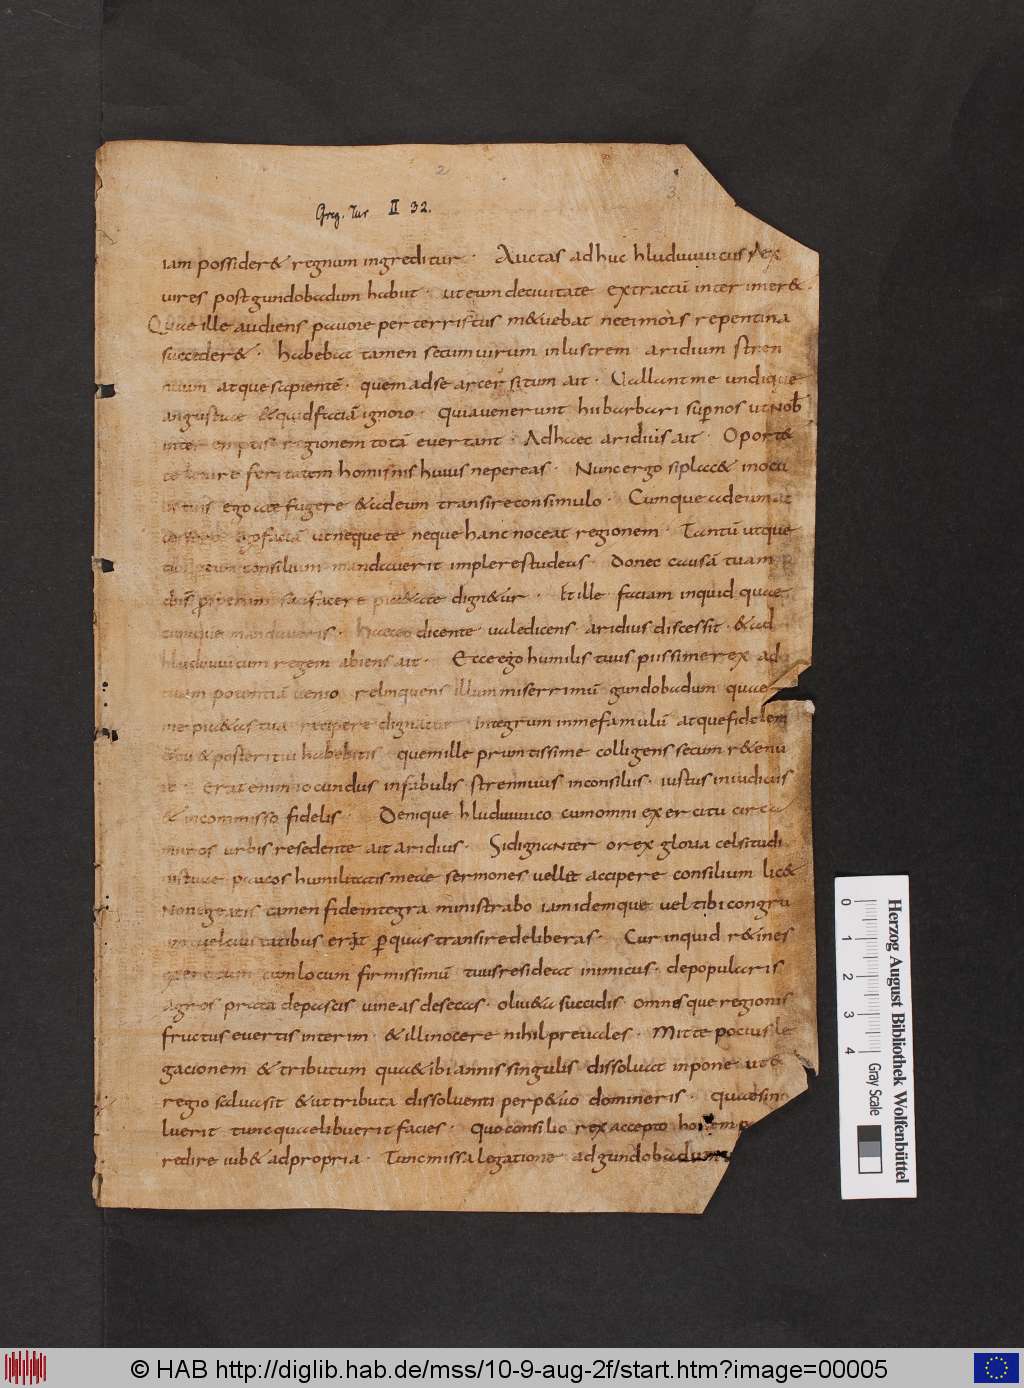 2
3
Greg. Tur II 32.
iam possider& regnum ingreditur · Auctas adhuc hluduuuicus rex
uires post gundobadum habiit · ut eum deciuitate extractū interimer&·
Quae ille audiens pauore perterristus m&uebat neei mors repentina
succeder& · habebat tamen secum uirum inlustrem aridium stren
nuum atque sapientē · quem ad se arcersitum ait · Uallant me undique
angustiae &quid faciā ignoro · quia uenerunt hii barbari sup nos ut nob
inter emptis regionem totā euertant · Ad haec aridius ait · Oport&
te lenire feritatem hominis huius ne pereas · Nunc ergo si plac& in ocu
ego a te fugere & ad eum transire consimulo · Cumque ad eum ac
faciā ut neque te neque hanc noceat regionem · Tantū ut que
consilium mandauerit implere studeas · donec causā tuam
dign&ur · Et ille faciam inquid quae
mandaueris · haec eo dicente ualedicens aridius discessit · & ad
hluduuuicum regem abiens ait · Ecce ego humilis tuus piissime rex ad
tuam potentiā uenio relinquens illum miserrimū gundobadum quae
me pi&as tua recipere dignatur integrum in me famulū atque fidelem
& tu & posteri tui habebitis quem ille prumtissime colligens secum r&enu
it · Erat enim iocundus in fabulis · strennuus in consiliis · iustus in iudiciis
& in commisso fidelis · Denique hluduuuico cum omni exercitu circa
muros urbis resedente ait aridius · Si dignanter o rex gloria celsitudi
nis tuae paucos humilitatis meae sermones uellit accipere consilium lic&
Non egeatis tamen fide integra ministrabo iam idemque uel tibi congru
um uel ciuitatibus erit p quas transire deliberas · Cur inquid r&ines
cum locum firmissimū tuus resideat inimicus · depopularis
agros prata depascis uineas desecas · oliu&a succidis omnesque regionis
fructus euertis interim · & illi nocere nihil preuales · Mitte pocius le
gacionem & tributum quod &ibi annis singulis dissoluat inpone ut &
regio saluasit & ut tributa dissoluenti perp&uo domineris · quae si no
luerit tunc quae libuerit facies · Quo consilio rex accepto hostem p
redire iub& ad propria · Tunc missa legatione ad gundobadum
Herzog August Bibliothek Wolfenbüttel
0 1 2 3 4 Gray Scale
© HAB http://diglib.hab.de/mss/10-9-aug-2f/start.htm?image=00005